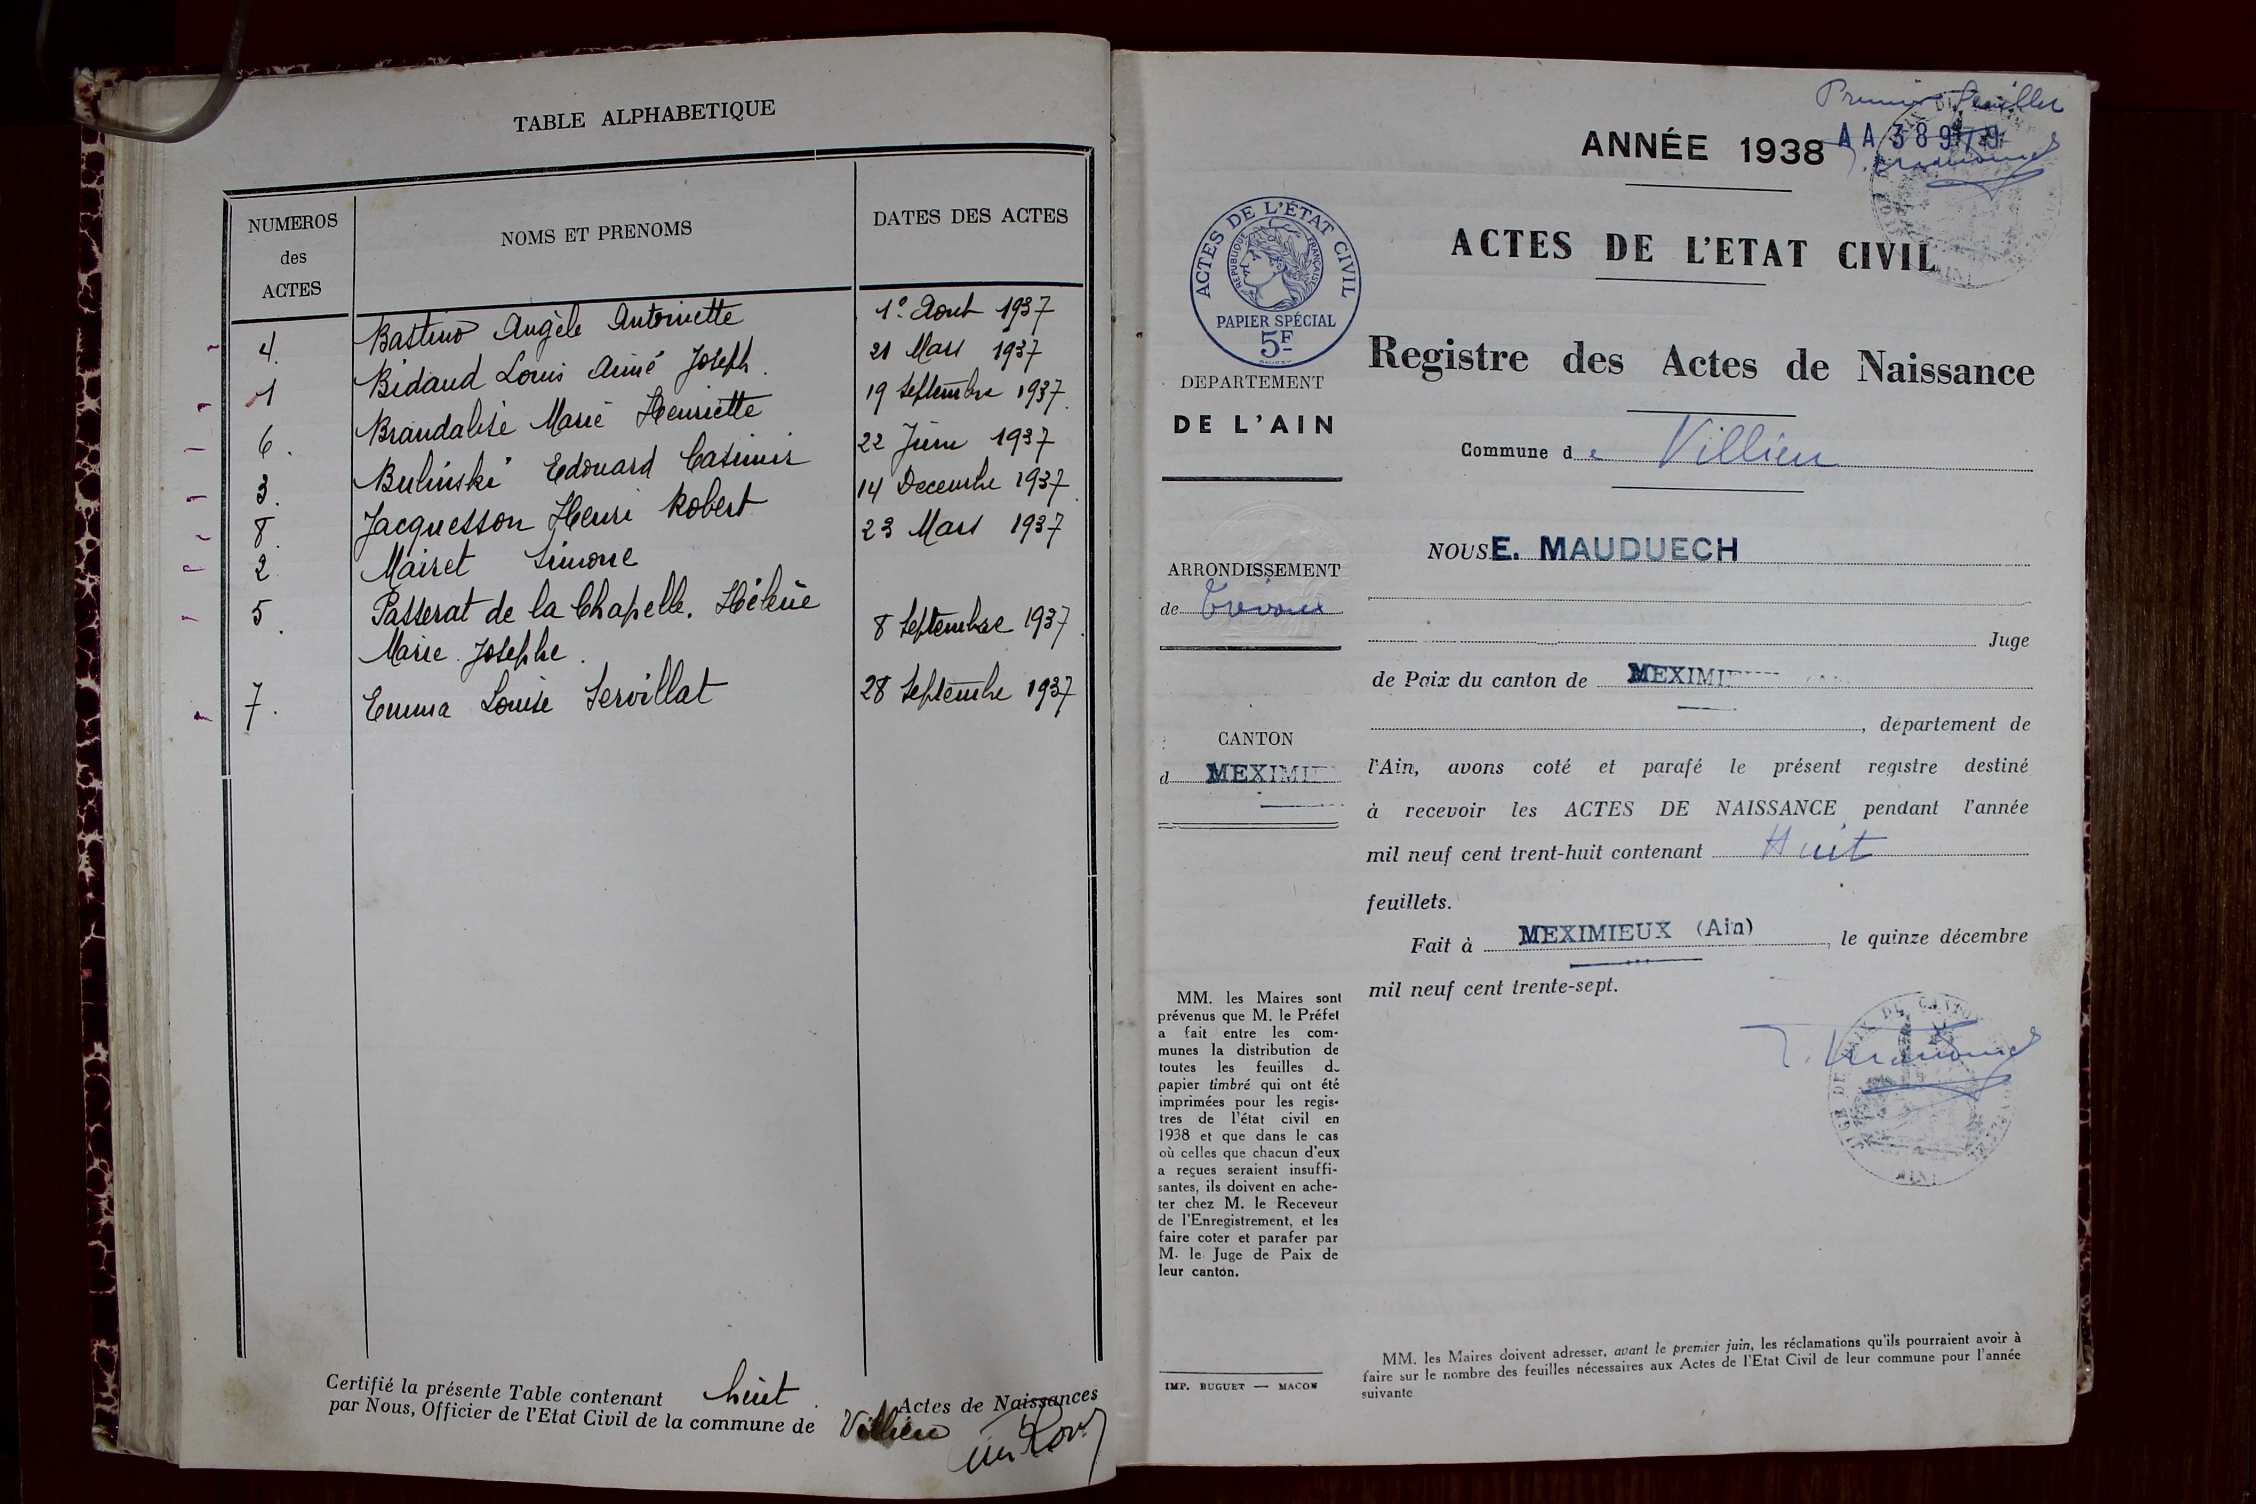 TABLE ALPHABETIQUE
NUMEROS
des
ACTES
NOMS ET PRENOMS
DATES DES ACTES
4. Bastino Angèle Antoinette 1º Aout 1937
1 Bidaud Louis Aimé Joseph. 21 Mars 1937
6. Brandalisé Marie Henriette 19 Septembre 1937.
3. Bulinski Edouard Casimir 22 Juin 1937
8. Jacquesson Henri Robert 14 Decembre 1937.
2 Mairet Simone 23 Mars 1937
5. Passerat de la Chapelle. Hélène
Marie. Josephe. 8 Septembre 1937.
7. Emma Louise Servillat 28 Septembre 1937
Certifié la présente Table contenant huit. Actes de Naissances
par Nous, Officier de l'Etat Civil de la commune de Villieu
Premier feuillet
ANNÉE 1938
AA 38979
ACTES DE L'ETAT CIVIL
ACTES DE L'ÉTAT CIVIL
RÉPUBLIQUE FRANÇAISE
PAPIER SPÉCIAL
5F
DEPARTEMENT
DE L'AIN
ARRONDISSEMENT
de Trévoux
CANTON
d MEXIMI
MM. les Maires sont
prévenus que M. le Préfet
a fait entre les com-
munes la distribution de
toutes les feuilles d
papier timbré qui ont été
imprimées pour les regis-
tres de l'état civil en
1938 et que dans le cas
où celles que chacun d'eux
a reçues seraient insuffi-
santes, ils doivent en ache-
ter chez M. le Receveur
de l'Enregistrement, et les
faire coter et parafer par
M. le Juge de Paix de
leur canton.
IMP. BUGUET — MACON
Registre des Actes de Naissance
Commune d e Villieu
NOUS E. MAUDUECH
Juge
de Paix du canton de MEXIMI
, département de
l'Ain, avons coté et parafé le présent registre destiné
à recevoir les ACTES DE NAISSANCE pendant l'année
mil neuf cent trent-huit contenant Huit
feuillets.
Fait à MEXIMIEUX (Ain), le quinze décembre
mil neuf cent trente-sept.
MM. les Maires doivent adresser, avant le premier juin, les réclamations qu'ils pourraient avoir à
faire sur le nombre des feuilles nécessaires aux Actes de l'Etat Civil de leur commune pour l'année
suivante